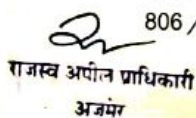 806/
राजस्व अपील प्राधिकारी
अजमेर